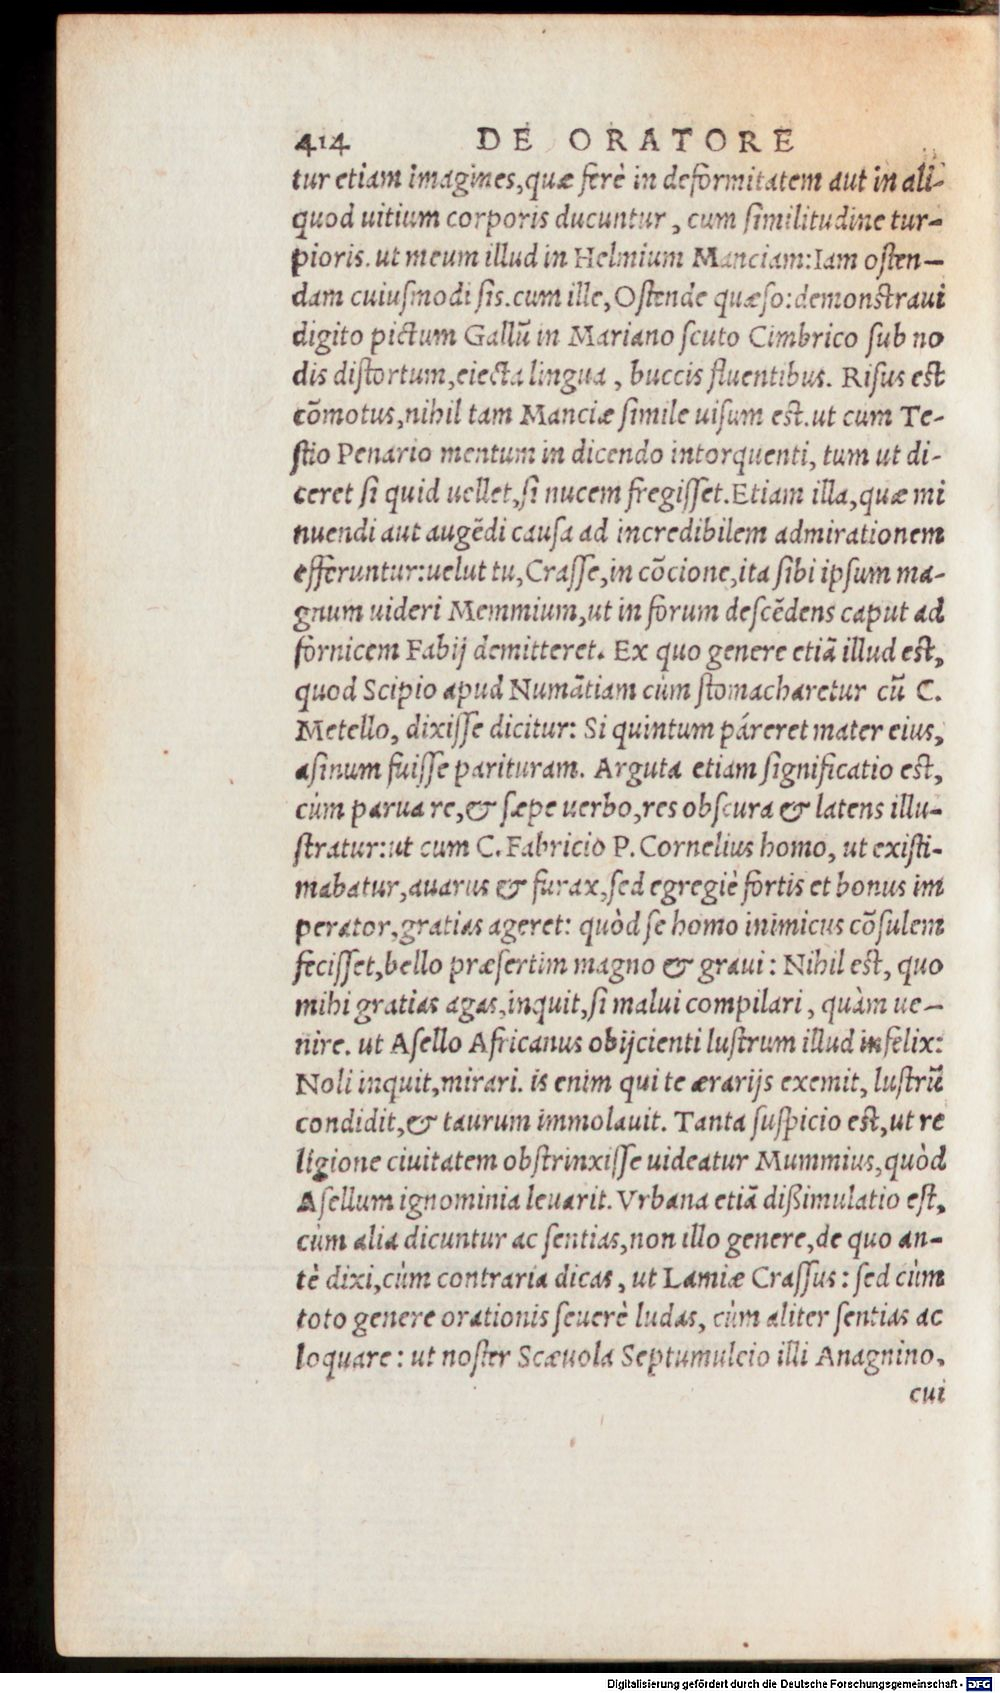 414 DE ORATORE
tur etiam imagines, quæ ferè in deformitatem aut in ali-
quod uitium corporis ducuntur, cum similitudine tur-
pioris. ut meum illud in Helmium Manciam: Iam osten-
dam cuiusmodi sis. cum ille, Ostende quæso: demonstraui
digito pictum Gallũ in Mariano scuto Cimbrico sub no
dis distortum, eiecta lingua, buccis fluentibus. Risus est
cõmotus, nihil tam Manciæ simile uisum est. ut cum Te-
stio Penario mentum in dicendo intorquenti, tum ut di-
ceret si quid uellet, si nucem fregisset. Etiam illa, quæ mi
nuendi aut augẽdi causa ad incredibilem admirationem
efferuntur: uelut tu, Crasse, in cõcione, ita sibi ipsum ma-
gnum uideri Memmium, ut in forum descẽdens caput ad
fornicem Fabij demitteret. Ex quo genere etiã illud est,
quod Scipio apud Numãtiam cùm stomacharetur cũ C.
Metello, dixisse dicitur: Si quintum páreret mater eius,
asinum fuisse parituram. Arguta etiam significatio est,
cùm parua re, & sæpe uerbo, res obscura & latens illu-
stratur: ut cum C. Fabricio P. Cornelius homo, ut existi-
mabatur, auarus & furax, sed egregiè fortis et bonus im
perator, gratias ageret: quòd se homo inimicus cõsulem
fecisset, bello præsertim magno & graui: Nihil est, quo
mihi gratias agas, inquit, si malui compilari, quàm ue-
nire. ut Asello Africanus obijcienti lustrum illud infelix:
Noli inquit, mirari. is enim qui te ærarijs exemit, lustrũ
condidit, & taurum immolauit. Tanta suspicio est, ut re
ligione ciuitatem obstrinxisse uideatur Mummius, quòd
Asellum ignominia leuarit. Vrbana etiã dißimulatio est,
cùm alia dicuntur ac sentias, non illo genere, de quo an-
tè dixi, cùm contraria dicas, ut Lamiæ Crassus: sed cùm
toto genere orationis seuerè ludas, cùm aliter sentias ac
loquare: ut noster Scæuola Septumuleio illi Anagnino,
cui
Digitalisierung gefördert durch die Deutsche Forschungsgemeinschaft - DFG